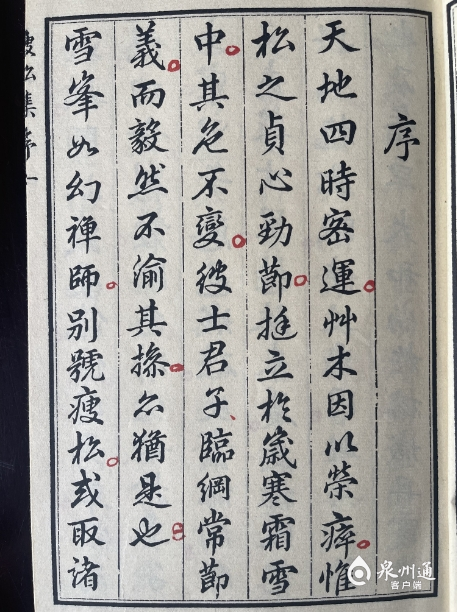 序
天地四時密運。艸木因以榮瘁。惟
松之貞心勁節。挺立於歲寒霜雪
中。其色不變。彼士君子、臨綱常節
義。而毅然不渝其操。亦猶是也。
雪峯如幻禪師。別號瘦松。或取諸
瘦松集序一
泉州通
客户端